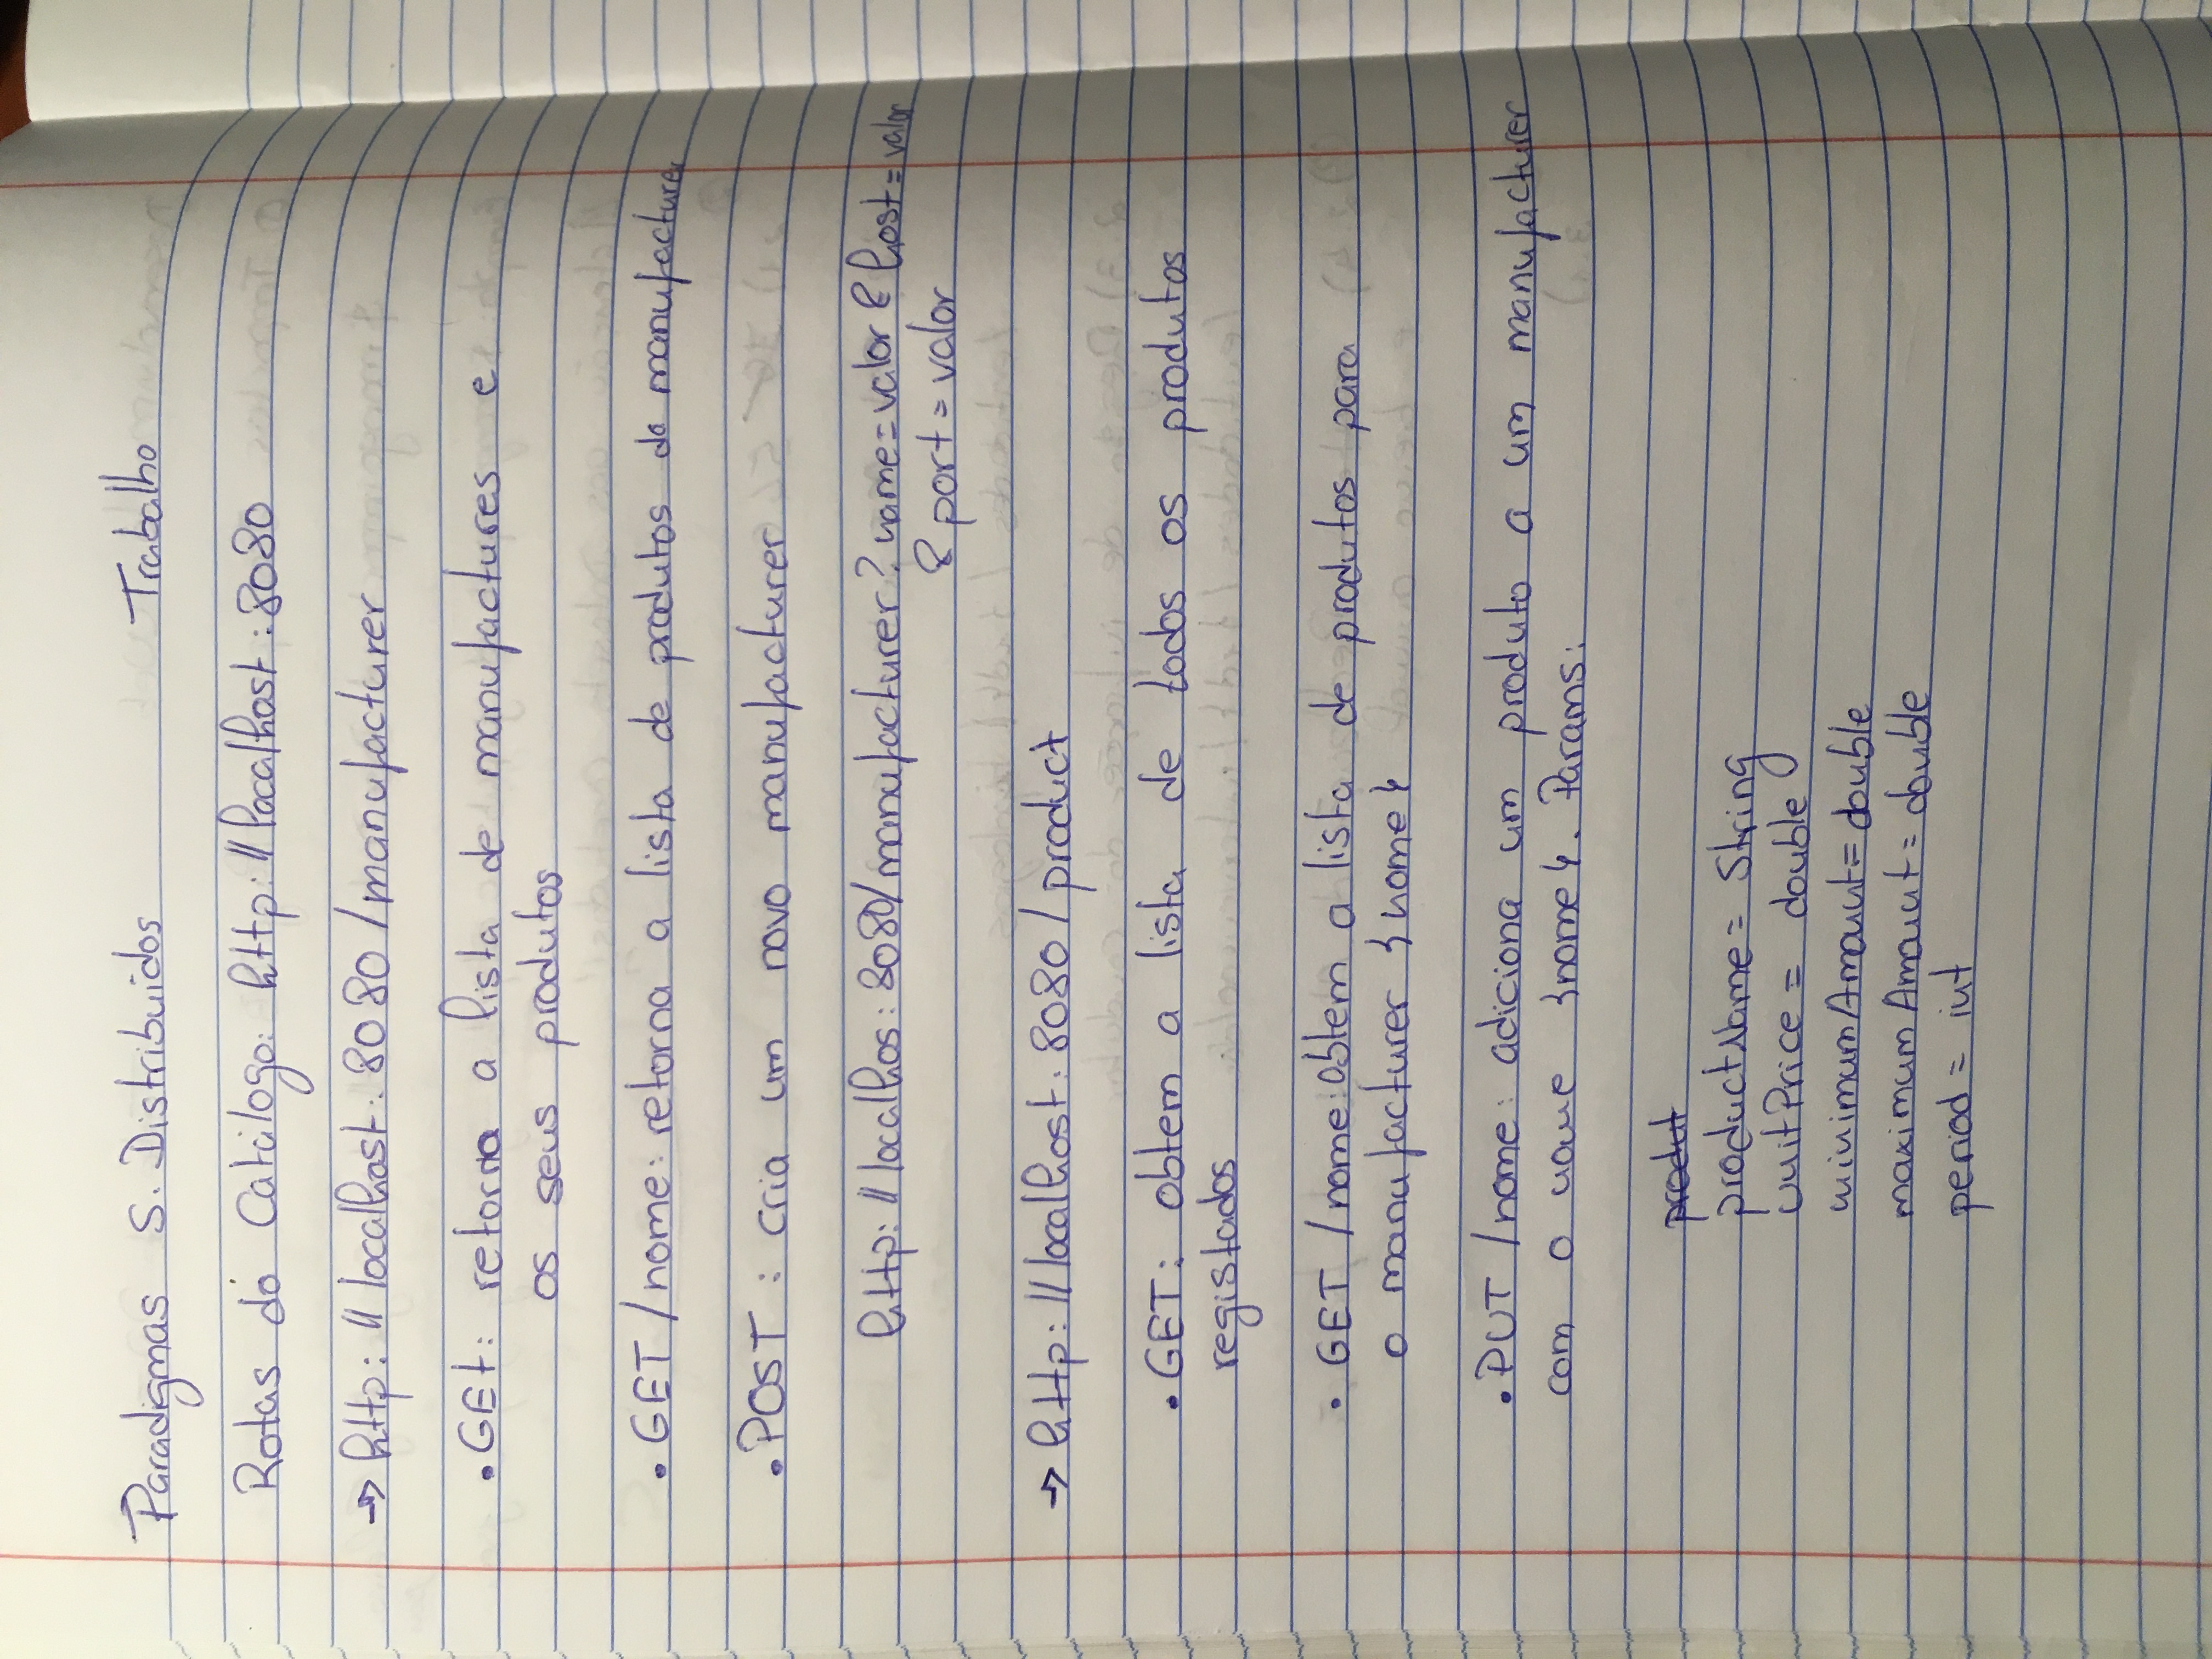 Paradigmas S. Distribuídos Trabalho
Rotas do Catálogo: http://localhost:8080
→ http://localhost:8080/manufacturer
• GEt: retorna a lista de manufactures e
os seus produtos
• GET /nome: retorna a lista de produtos do manufacturer
• POST : cria um novo manufacturer
http://localhos:8080/manufacturer?name=valor&host=valor
&port=valor
→ http://localhost:8080/product
• GET: obtem a lista de todos os produtos
registados
• GET /nome: obtem a lista de produtos para
o manufacturer {nome}
• PUT /nome: adiciona um produto a um manufacturer
com o nome {nome}. Params:
produt
productName = String
unitPrice = double
minimumAmount = double
maximumAmount = double
period = int